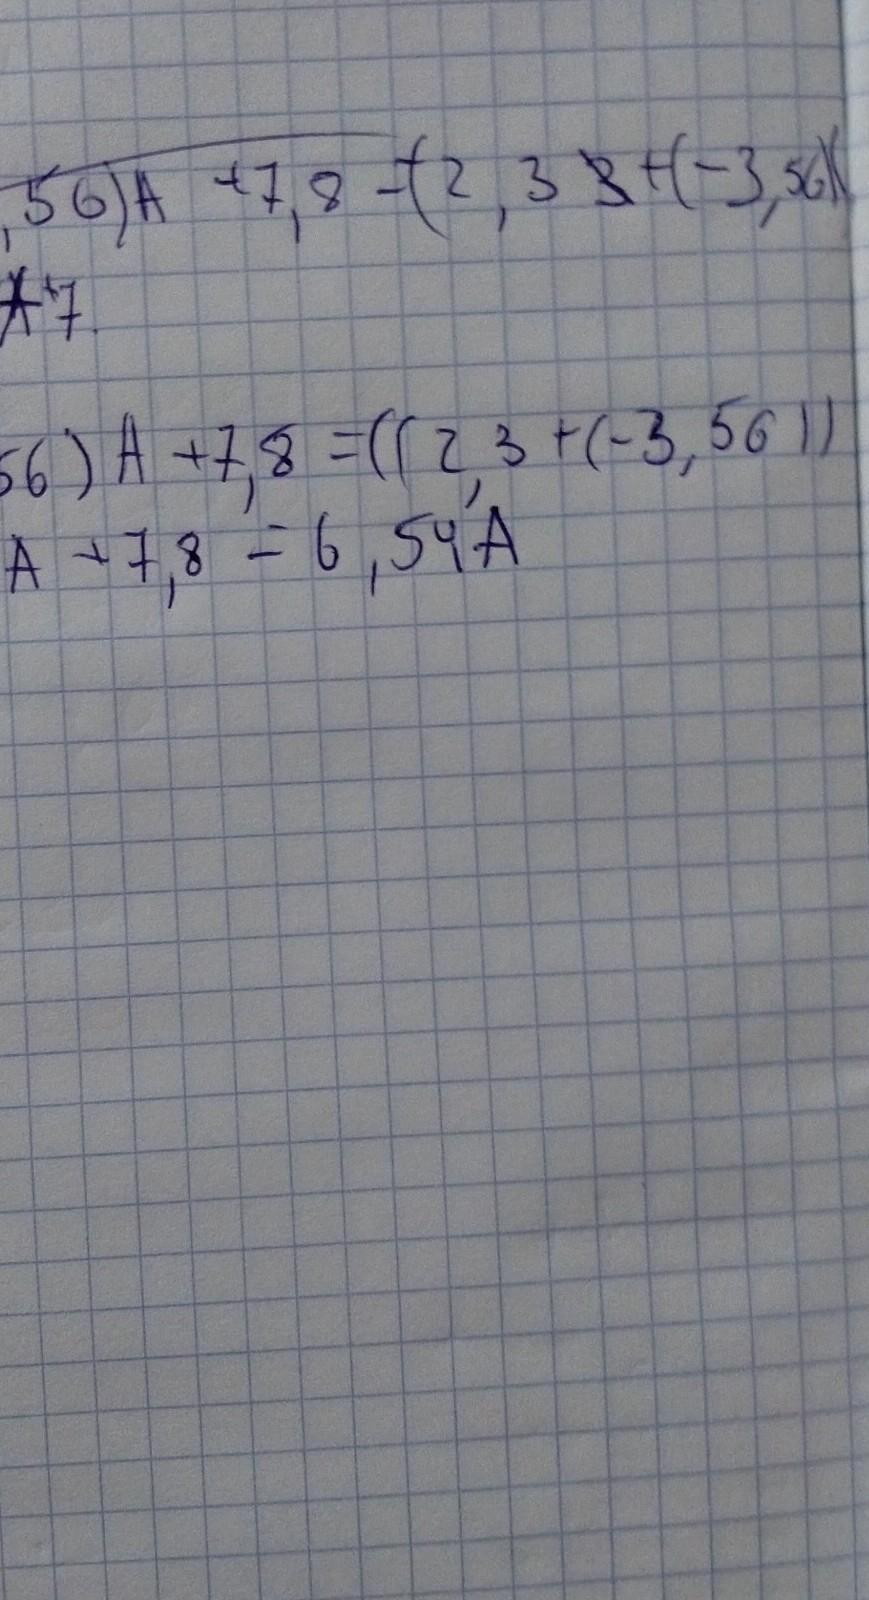 ,56)A +7,8 =(2,3 +(-3,56)
+7.
56) A +7,8 =((2,3 +(-3,56))
A +7,8 = 6,54A